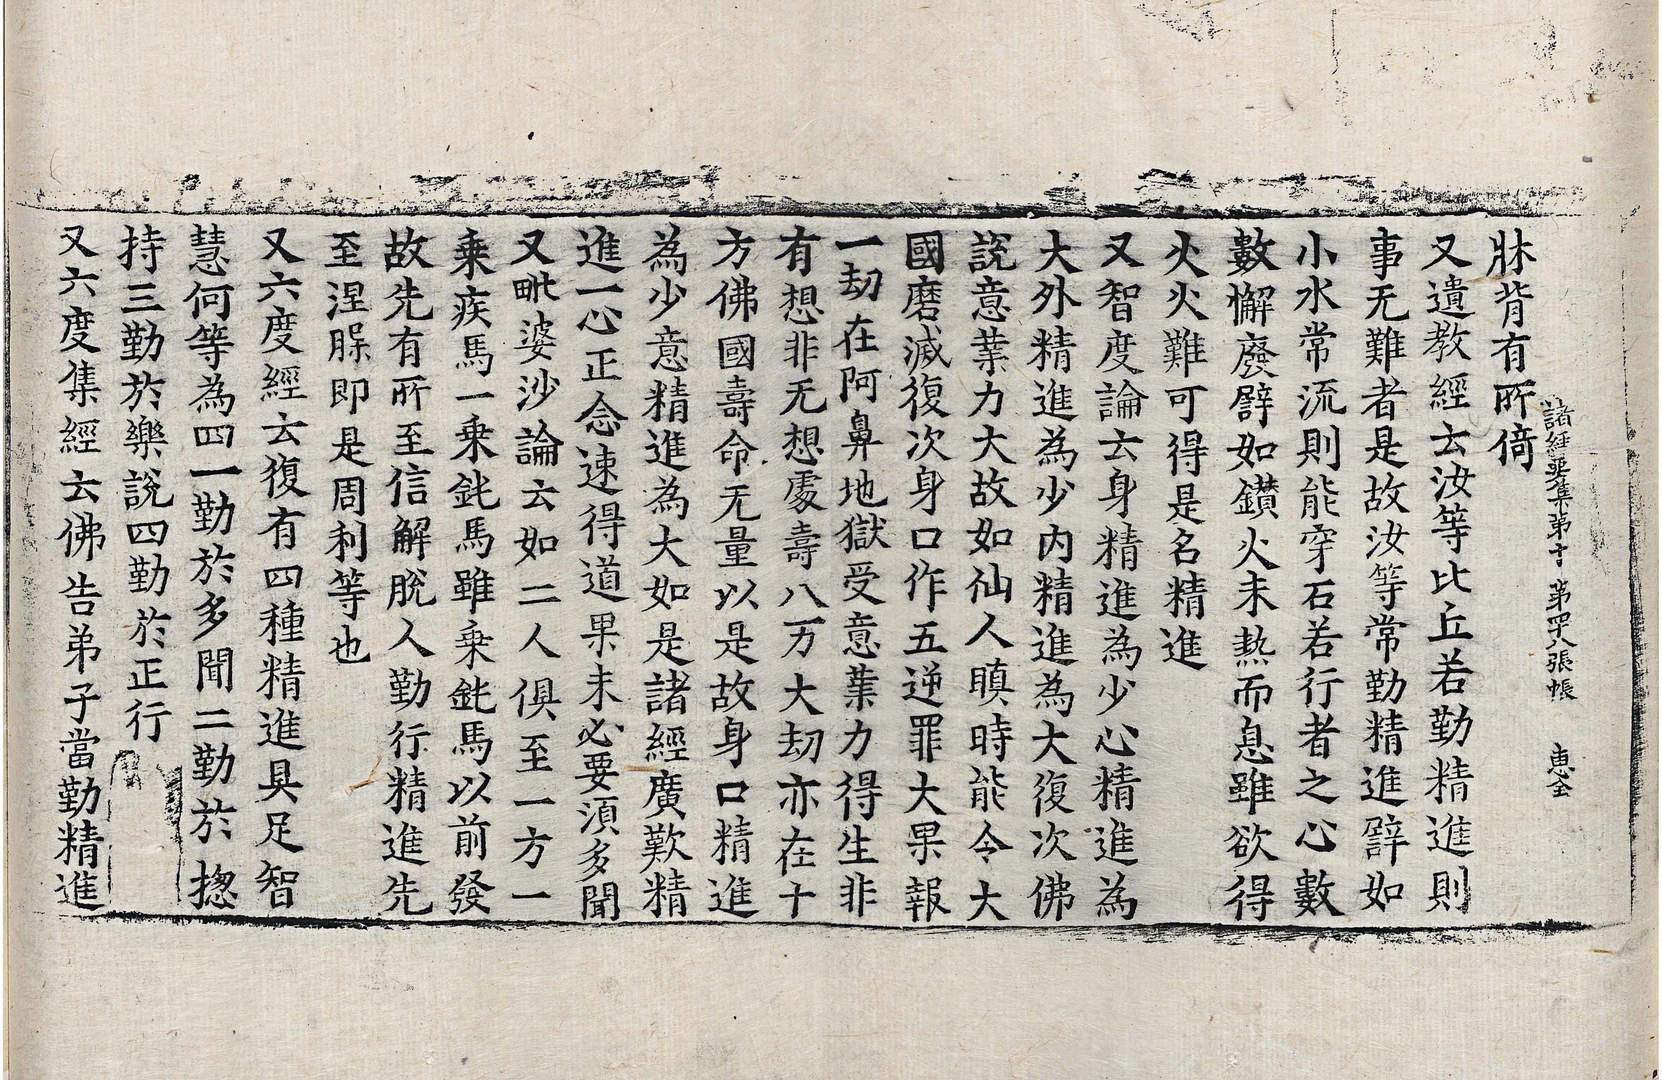 諸經要集第十 第四八張 帳 惠全
牀背有所倚
又遺教經云汝等比丘若勤精進則
事无難者是故汝等常勤精進譬如
小水常流則能穿石若行者之心數
數懈廢譬如鑚火未熱而息雖欲得
火火難可得是名精進
又智度論云身精進為少心精進為
大外精進為少内精進為大復次佛
說意業力大故如仙人瞋時能令大
國磨滅復次身口作五逆罪大果報
一劫在阿鼻地獄受意業力得生非
有想非无想處壽八万大劫亦在十
方佛國壽命无量以是故身口精進
為少意精進為大如是諸經廣歎精
進一心正念速得道果未必要湏多聞
又毗婆沙論云如二人俱至一方一
乘疾馬一乘鈍馬雖乘鈍馬以前發
故先有所至信解脫人勤行精進先
至涅槃即是周利等也
又六度經云復有四種精進具足智
慧何等為四一勤於多聞二勤於揔
持三勤於樂說四勤於正行
又六度集經云佛告弟子當勤精進